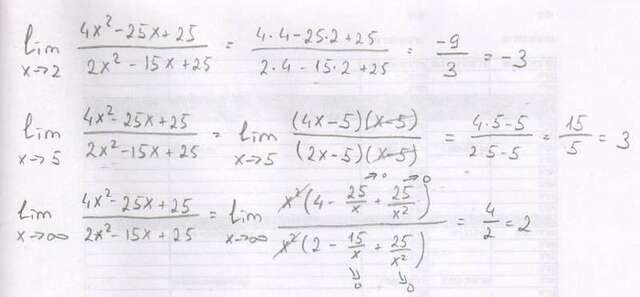 lim x→2 (4x² - 25x + 25)/(2x² - 15x + 25) = (4·4 - 25·2 + 25)/(2·4 - 15·2 + 25) = -9/3 = -3
lim x→5 (4x² - 25x + 25)/(2x² - 15x + 25) = lim x→5 ((4x - 5)(x - 5))/((2x - 5)(x - 5)) = (4·5 - 5)/(2·5 - 5) = 15/5 = 3
lim x→∞ (4x² - 25x + 25)/(2x² - 15x + 25) = lim x→∞ (x²(4 - 25/x→0 + 25/x²→0))/(x²(2 - 15/x→0 + 25/x²→0)) = 4/2 = 2